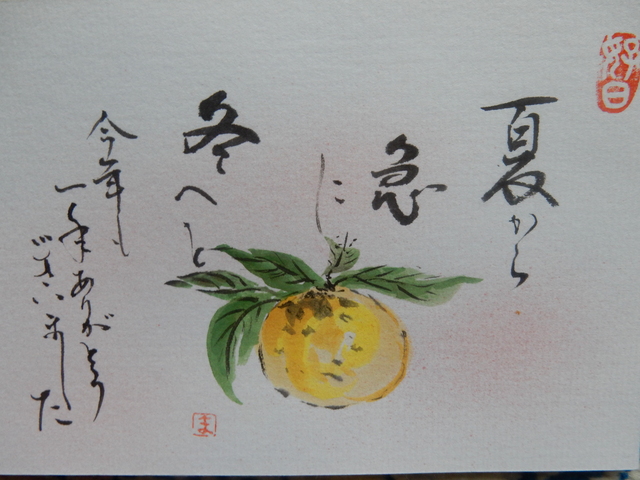 夏から
急に
冬へと
今年も
一年ありがとう
ございました
好日